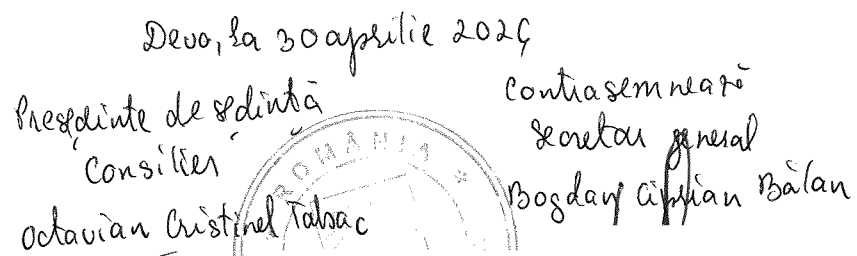 Deva, la 30 aprilie 2024
Președinte de ședință
Consilier
Octavian Cristinel Tabac
Contrasemnează
Secretar general
Bogdan Ciprian Bălan
ROMÂNIA *